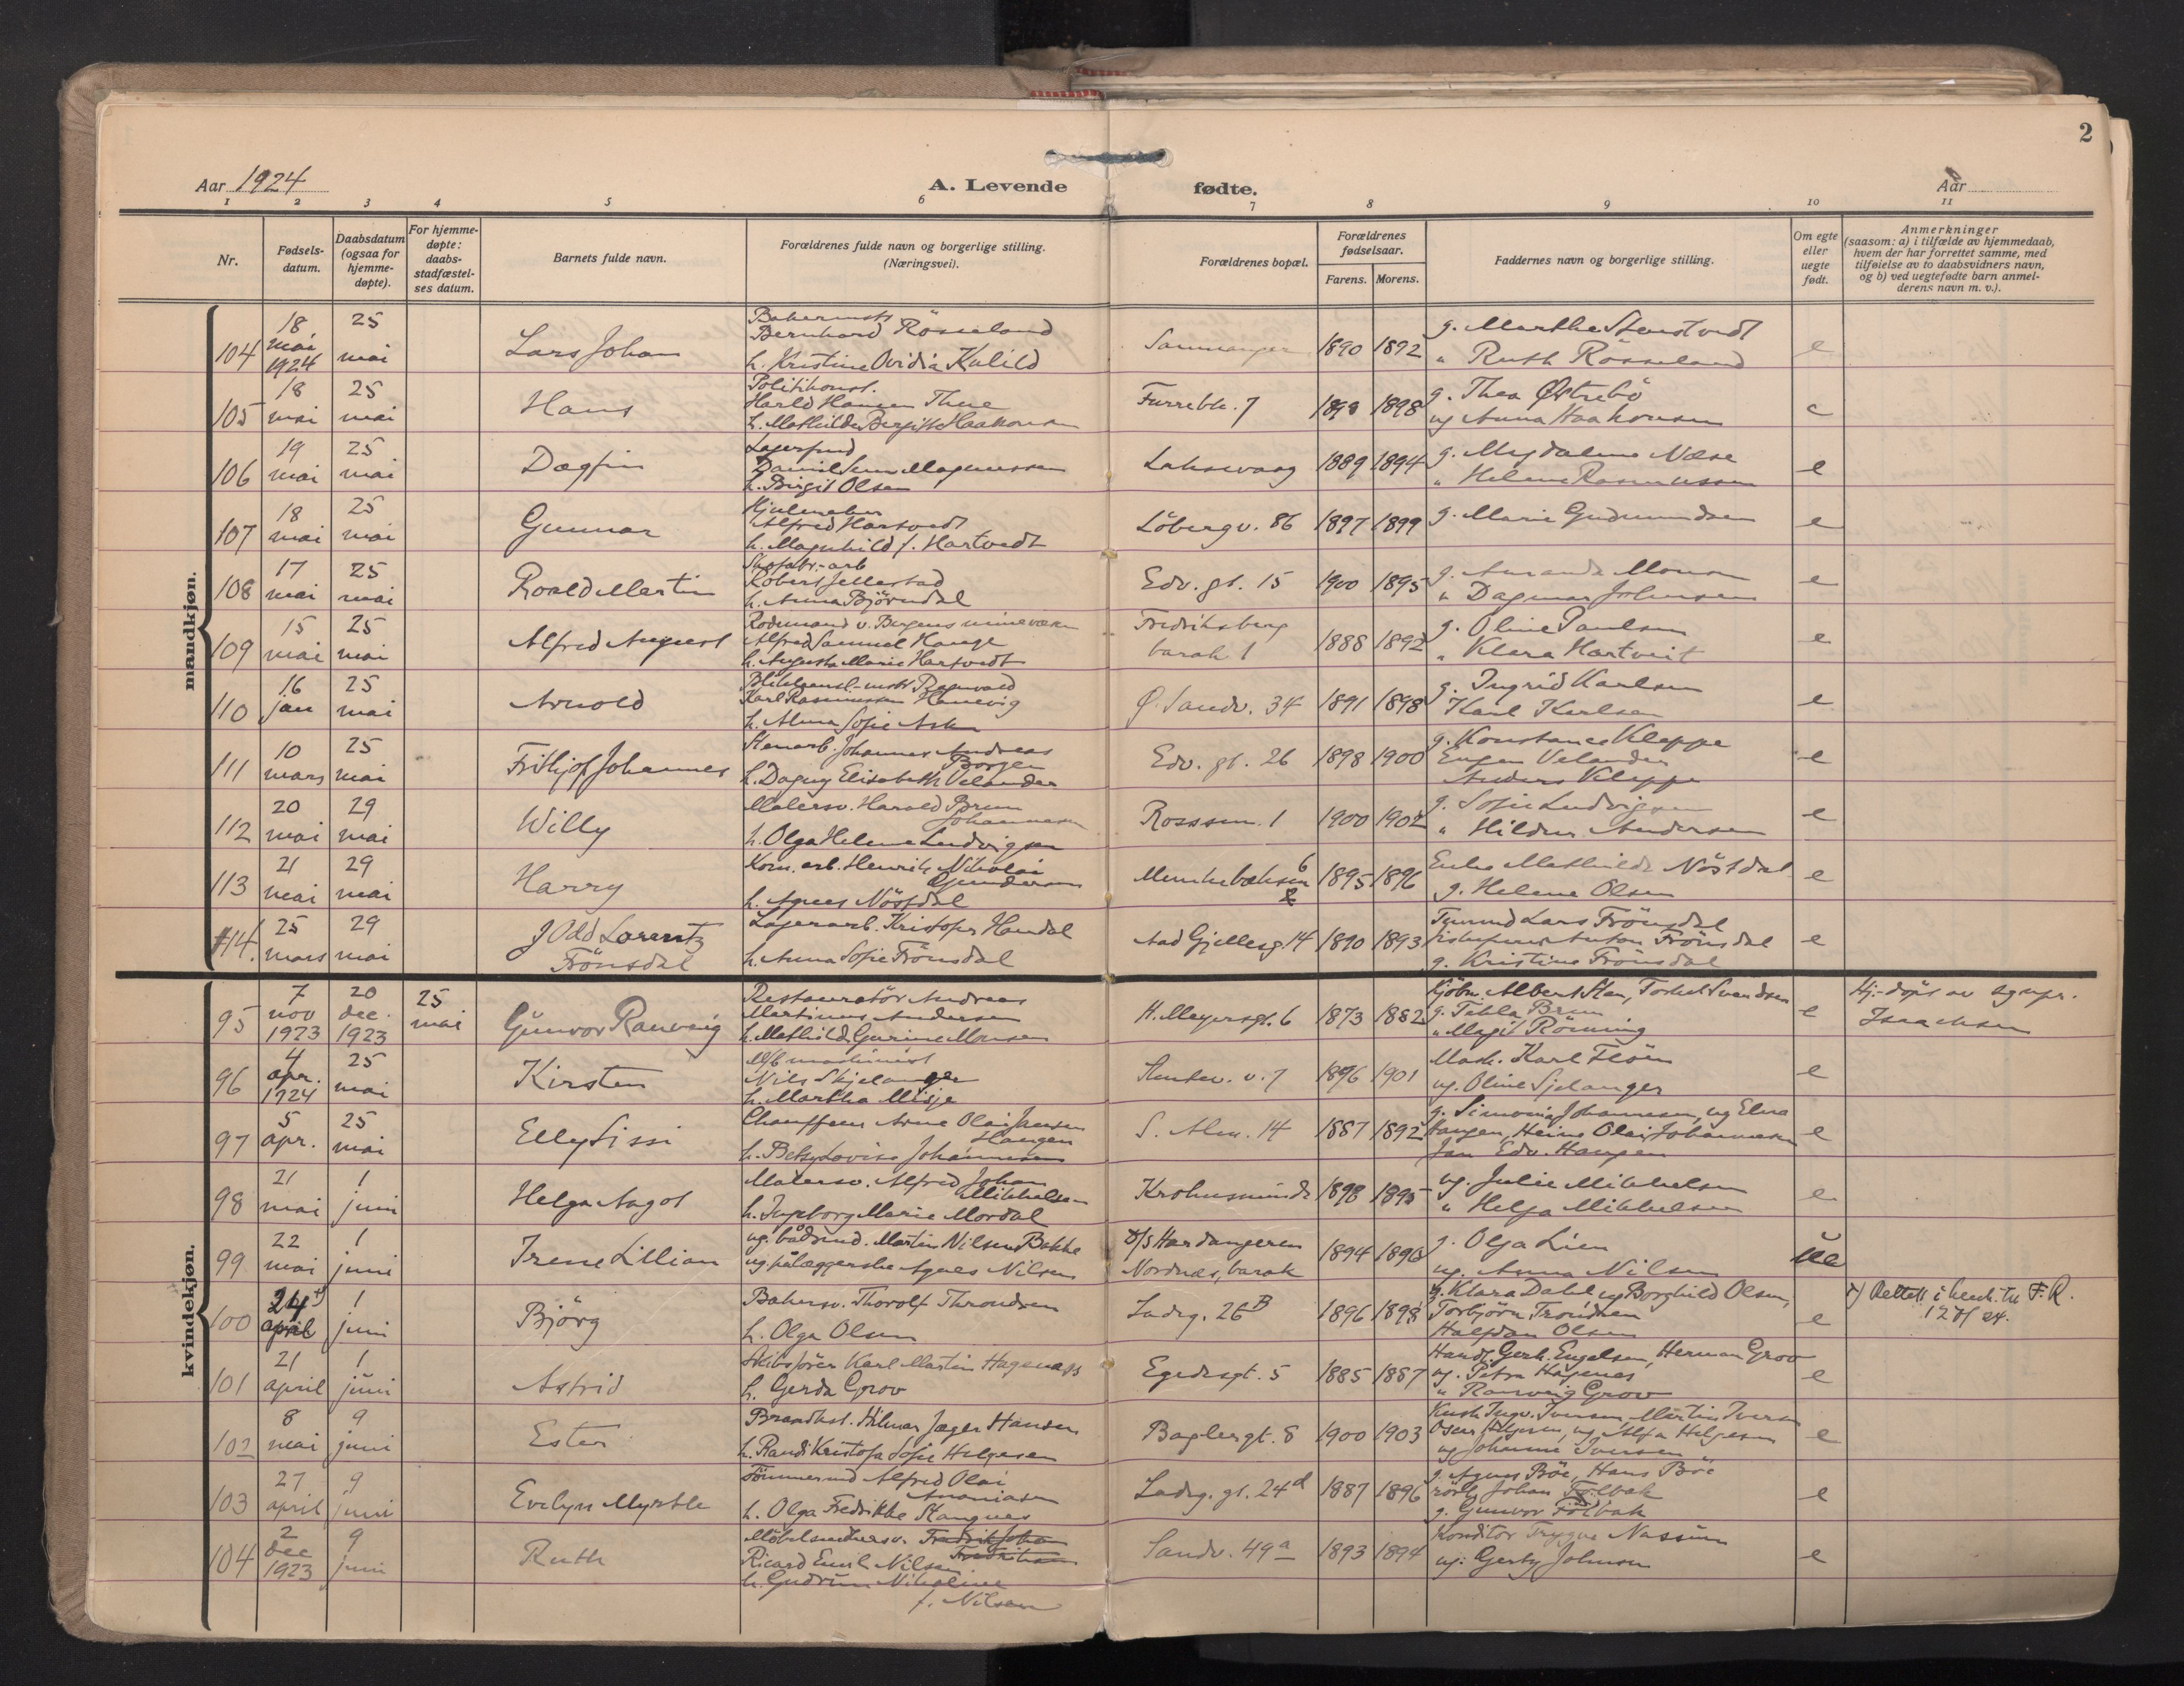 2
Aar 1924
A. Levende fødte.
Aar
1 2 3 4 5 6 7 8 9 10 11
Nr.
Fødsels-
datum.
Daabsdatum
(ogsaa for
hjemme-
døpte).
For hjemme-
døpte:
daabs-
stadfæstel-
ses datum.
Barnets fulde navn.
Forældrenes fulde navn og borgerlige stilling.
(Næringsvei).
Forældrenes bopæl.
Forældrenes
fødselsaar.
Farens. Morens.
Faddernes navn og borgerlige stilling.
Om egte
eller
uegte
født.
Anmerkninger
(saasom: a) i tilfælde av hjemmedaab,
hvem der har forrettet samme, med
tilføielse av to daabsvidners navn,
og b) ved uegtefødte barn anmel-
derens navn m. v.).
mandkjøn.
104 18 mai 1924 25 mai Lars Johan
Bernhard Rösseland
h. Kristine Ovidia Kulild
Samnanger 1890 1892
g. Marthe Stenstvedt
" Ruth Rösseland
e
105 18 mai 25 mai Hans
Politikonst.
Harld Hansen Thue
h. Mathilde Bergitte Haakonsen
Furrebk. 7 1898 1898
g. Thea Østrebö
ug Anna Haakonsen
e
106 19 mai 25 mai Dagfin
Magnussen
h. Birgit Olsen
Laksevaag 1889 1894
g. Magdalene Næse
" Helene Rasmussen
e
107 18 mai 25 mai Gunnar
Alfred Hartvedt
h. Magnhild f. Hartvedt
Löbergv. 86 1897 1899
g. Marie Gudmundsen
e
108 17 mai 25 mai Roald Martin
Skofabr.-arb
Robert Jellestad
h. Anna Björndal
Edv. gt. 15 1900 1895
g. Amanda Monsen
" Dagmar Johnsen
e
109 15 mai 25 mai Alfred August
Rodemand v. Bergens
Alfred Samuel Hauge
h. Augusta Marie Hartvedt
Fredriksberg
barak 1 1888 1892
g. Oline Paulsen
" Klara Hartveit
e
110 16 jan 25 mai Arnold
Karl Rasmussen Hanevig
h. Alma Sofie Ask
Ø. Sandv. 34 1891 1898
g. Ingrid Karlsen
Karl Karlsen
e
111 10 mars 25 mai Fritjof Johannes
Stenarb. Johannes Andreas
Borgen
h. Dagny Elisabeth Velander
Edv. gt. 26 1898 1900
g. Konstance Kleppe
Eugen Velander
Anders Kleppe
e
112 20 mai 29 mai Willy
Malersv. Harald Brun
Johannesen
h. Olga Helene Ludvigsen
Rosssm. 1 1900 1902
g. Sofie Ludvigsen
" Hildur Andersen
e
113 21 mai 29 mai Harry
Korn. arb. Henrik Nikolai
Gundersen
h. Agnes Nöstdal
6 1895 1896
Enke Mathilde Nöstdal
g. Helene Olsen
e
114. 25 mars 29 mai Odd Lorentz
Frönsdal
Lagerarb. Kristofer Handal
h. Anna Sofie Frönsdal
Aad Gjellesg 14 1890 1893
Lars Frönsdal
Anton Frönsdal
g. Kristine Frönsdal
e
kvindekjøn.
95 7 nov 1923 20 dec. 1923 25 mai Gunvor Ranveig
Restauratör Andreas
Martinus Andersen
h. Mathilde Gurine Monsen
H. Meyersgt. 6 1873 1882
Kjöbm. Albert Sten, Torkel Svendsen
g. Tekla Brun
" Magit Rönning
e
Hj.-döpt av sognpr.
Isaachsen
96 4 apr. 1924 25 mai Kirsten
M/b maskinist
Nils Skjelanger
h. Martha Misje
v. 7 1896 1901
Mask. Karl Flöen
ug. Oline Sjelanger
e
97 5 apr. 25 mai Elly Sissi
Chauffeur Arne Olai Jansen
Haugen
h. Betsy Lovise Johannesen
S. Alm. 14 1887 1892
g. Simonia Johannesen, ug Elna
Haugen, Heine Olai Johannesen
Jan Edv. Haugen
e
98 21 mai 1 juni Helga Aagot
Malersv. Alfred Johan
Mikkelsen
h. Ingeborg Marie Mordal
Krohnsminde 1898 1895
ug. Julie Mikkelsen
" Helga Mikkelsen
e
99 22 mai 1 juni Irene Lillian
ug. bådsmd. Martin Nilsen Bakke
ug. pålæggerske Agnes Nilsen
D/S Hardangeren
Nordnæs, barak 1894 1896
g. Olga Lien
ug. Anna Nilsen
ue
100 24 april 1 juni Björg
Bakersv. Thorolf Throndsen
h. Olga Olsen
Ladeg. 26 B 1896 1898
g. Klara Dahl ug Borghild Olsen,
Torbjörn Trondsen
Halfdan Olsen
e
Rettet i henh. til F. R.
101 21 april 1 juni Astrid
Skibsförer Karl Martin Hagenæs
h. Gerda Grov
Egedesgt. 5 1885 1887
Handl. Gerh. Engelsen, Herman Grov
ug. Petra Hagenes
" Ranveig Grov
e
102 8 mai 9 juni Ester
Brandkst. Hilmar Jæger Hansen
h. Randi Kristofa Sofie Helgesen
Baglergt. 8 1900 1903
Kusk Ingv. Iversen Martin Iversen
Oscar Helgesen, ug Alfa Helgesen
ug Johanne Iversen
e
103 27 april 9 juni Evelyn Myrtle
Tömmermd Alfred Olai
Ananiasen
h. Olga Fredrikke Stangnes
Ladeg. gt. 24 d 1887 1896
g. Agnes Böe, Hans Böe
Johan Folbak
g. Gunvor Folbak
e
104 2 dec 1923 9 juni Ruth
Möbelsnekkersv. Fredrik Johan
Fredriksen
Ricard Emil Nilsen
h. Gudrun Nikoline
f. Nilsen
Sandv. 49 a 1893 1894
Konditor Trygve Nassun
ug. Gerty Johnsen
e